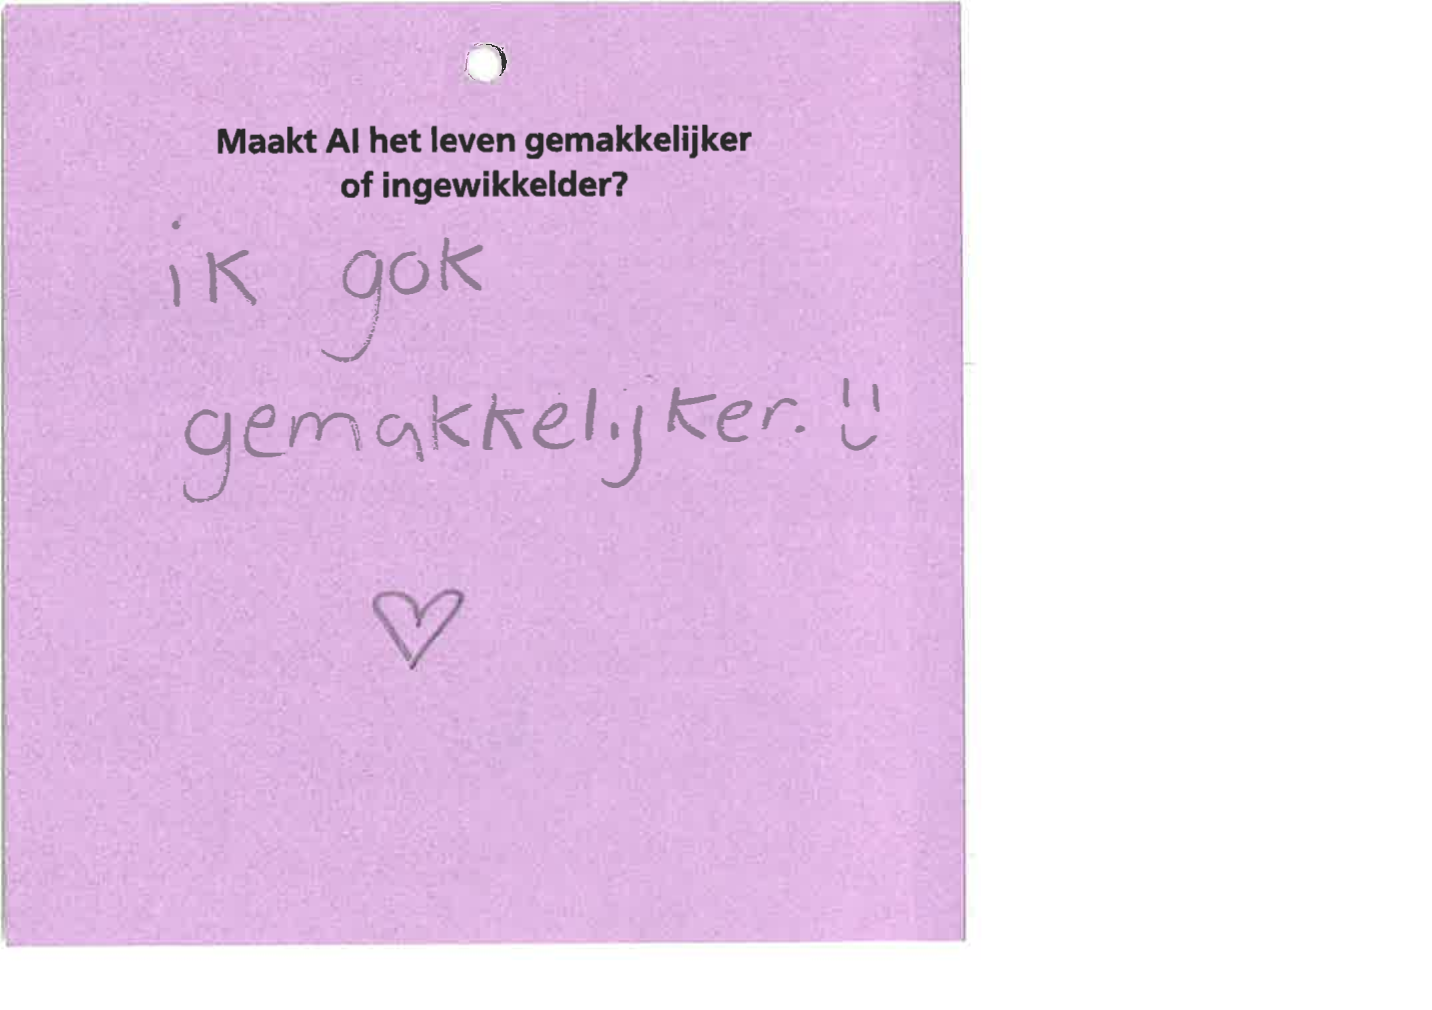 Maakt AI het leven gemakkelijker
of ingewikkelder?
ik gok
gemakkelijker.